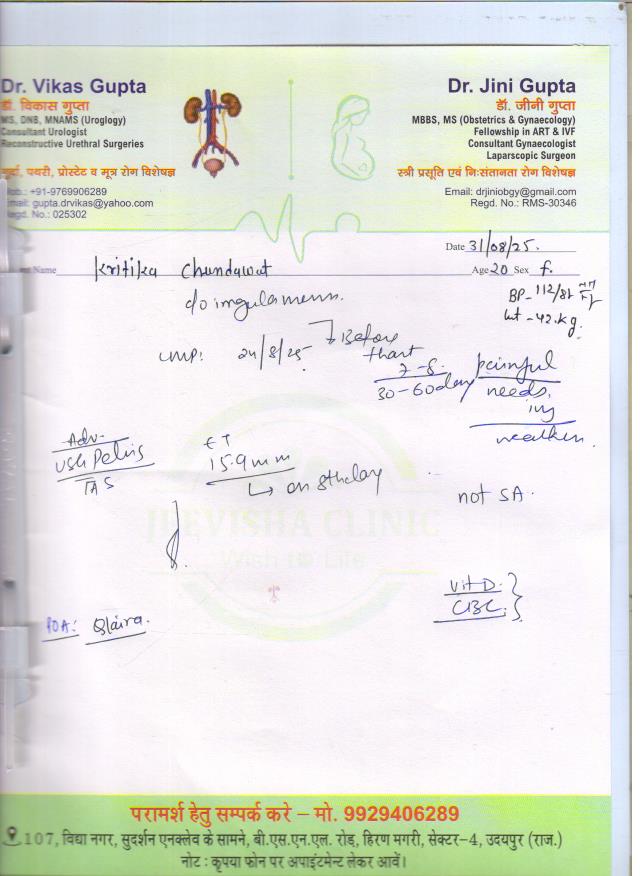 Dr. Vikas Gupta
डॉ. विकास गुप्ता
MS, DNB, MNAMS (Uroglogy)
Consultant Urologist
Reconstructive Urethral Surgeries
गुर्दा, पथरी, प्रोस्टेट व मूत्र रोग विशेषज्ञ
Mob.: +91-9769906289
Email: gupta.drvikas@yahoo.com
Regd. No.: 025302
Dr. Jini Gupta
डॉ. जीनी गुप्ता
MBBS, MS (Obstetrics & Gynaecology)
Fellowship in ART & IVF
Consultant Gynaecologist
Laparscopic Surgeon
स्त्री प्रसूति एवं निःसंतानता रोग विशेषज्ञ
Email: drjiniobgy@gmail.com
Regd. No.: RMS-30346
Date 31/08/25.
Name Kritika Chundawat
Age 20 Sex f.
BP - 112/81
Wt - 42.kg.
c/o irregular mens.
LMP: 24/8/25 → Before that
7-8.
30-60 day
painful
needs
inj
Adv.
USG Pelvis
TAS
ET
15.9mm
↳ on 8th day
not SA.
JEEVISHA CLINIC
Wish to Life
Vit D.
CBC.
POA: Qlaira.
परामर्श हेतु सम्पर्क करे – मो. 9929406289
107, विद्या नगर, सुदर्शन एनक्लेव के सामने, बी.एस.एन.एल. रोड़, हिरण मगरी, सेक्टर-4, उदयपुर (राज.)
नोट : कृपया फोन पर अपाइंटमेन्ट लेकर आवें।